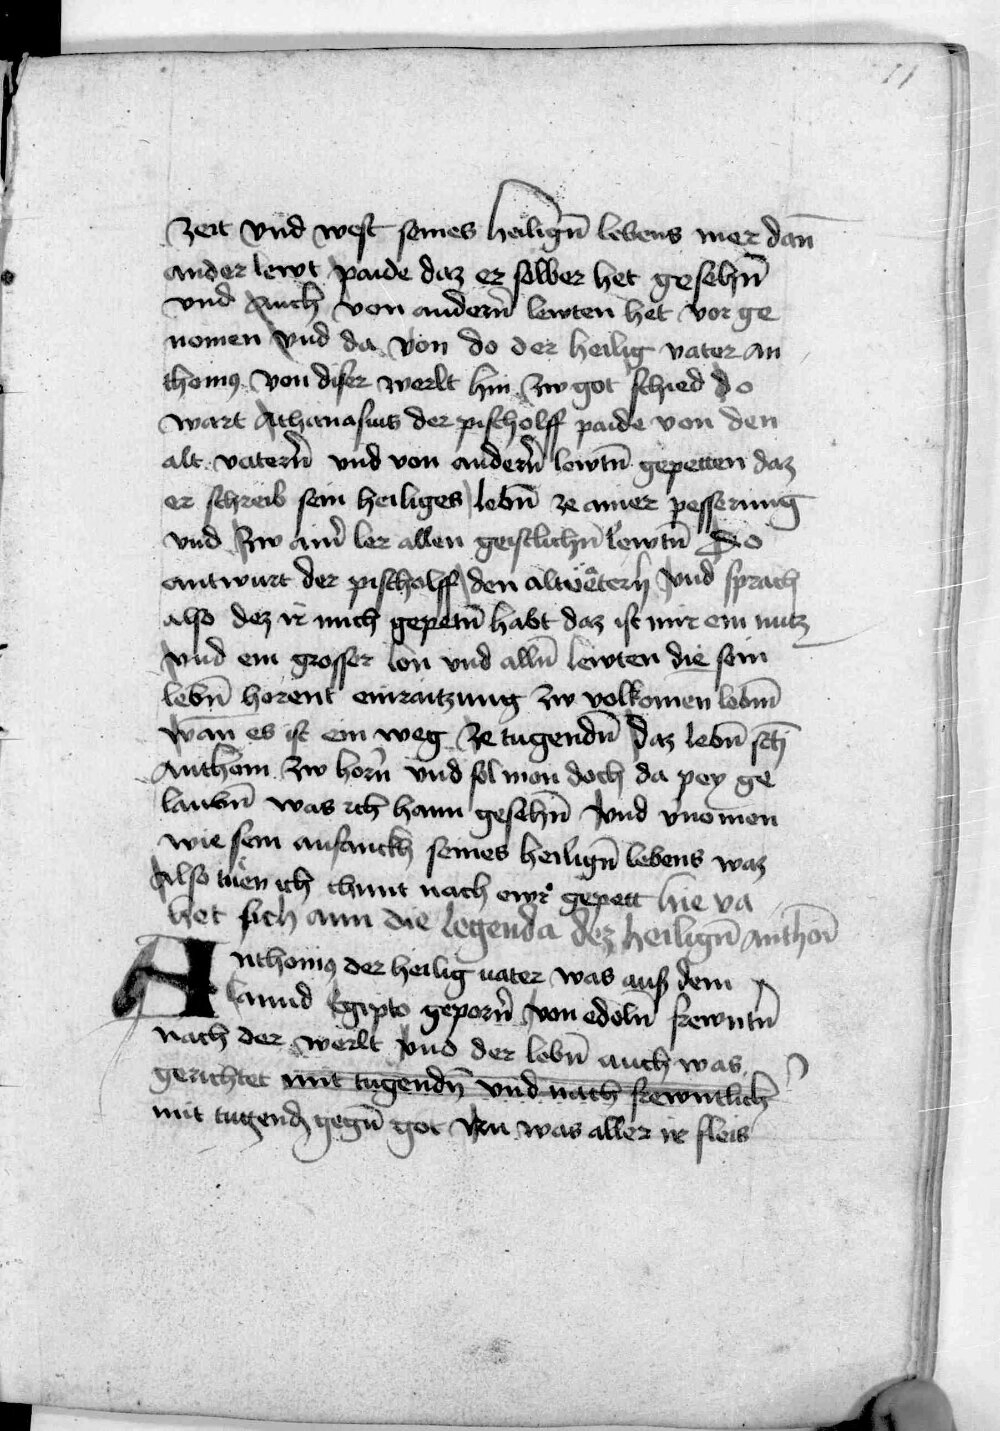 11
zeit vnd west seines heilign̄ lebens mer dan̄
ander lewt paide daz er selber het gesehn̄
vnd Auch von andern̄ lewten het vor ge
nomen vnd da von do der heilig vater an
thoniꝰ von diser werlt hin zw got schied do
wart Athanasius der pischolff paide von den
alt vatern̄ vnd von andern̄ lewtn̄ gepetten daz
er schreib sein heiliges lebn̄ ze ainer pesserung
vnd zw ainr̄ ler allen geistlichn̄ lewtn̄ Do
antwurt der pischolff den altvätern̄ vnd sprach
also dez ir mich gepetn̄ habt daz ist mir ein nutz
vnd ein grosser lon vnd alln̄ lewten die sein
lebn̄ horent einraitzung zw volkomen lebn̄
wan̄ es ist ein weg ze tugendn̄ daz lebn̄ scti
Anthoni zw horn̄ vnd sol mon doch da pey ge
laubn̄ was ich hann gesehn̄ vnd v̄nomen
wie sein anfanckh seines heilign̄ lebens waz
Also tuen ich chunt nach ewr̄ gepett hie va
het sich ann die legenda dez heilign̄ anthon̄i
Anthoniꝰ der heilig vater was auß dem
lannd Egipto geporn̄ von edeln̄ frewntn̄
nach der werlt vnd der lebn̄ auch was
gerichtet mit tugendn̄ vnd nach frewntlich
mit tugend gegn̄ got vnn was aller ir fleis